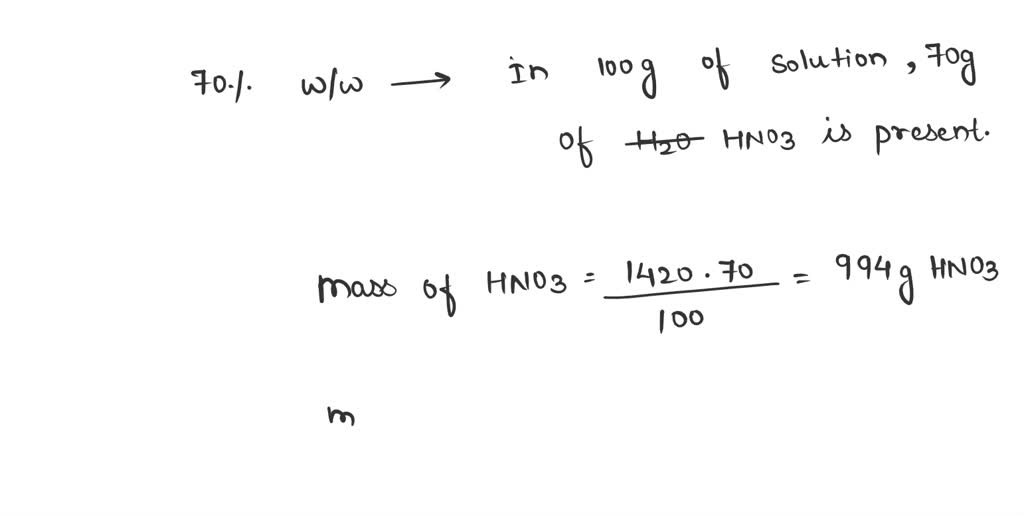 70% w/w → In 100g of solution, 70g
of ~~H2O~~ HNO3 is present.
mass of HNO3 = 1420 . 70 / 100 = 994g HNO3
m